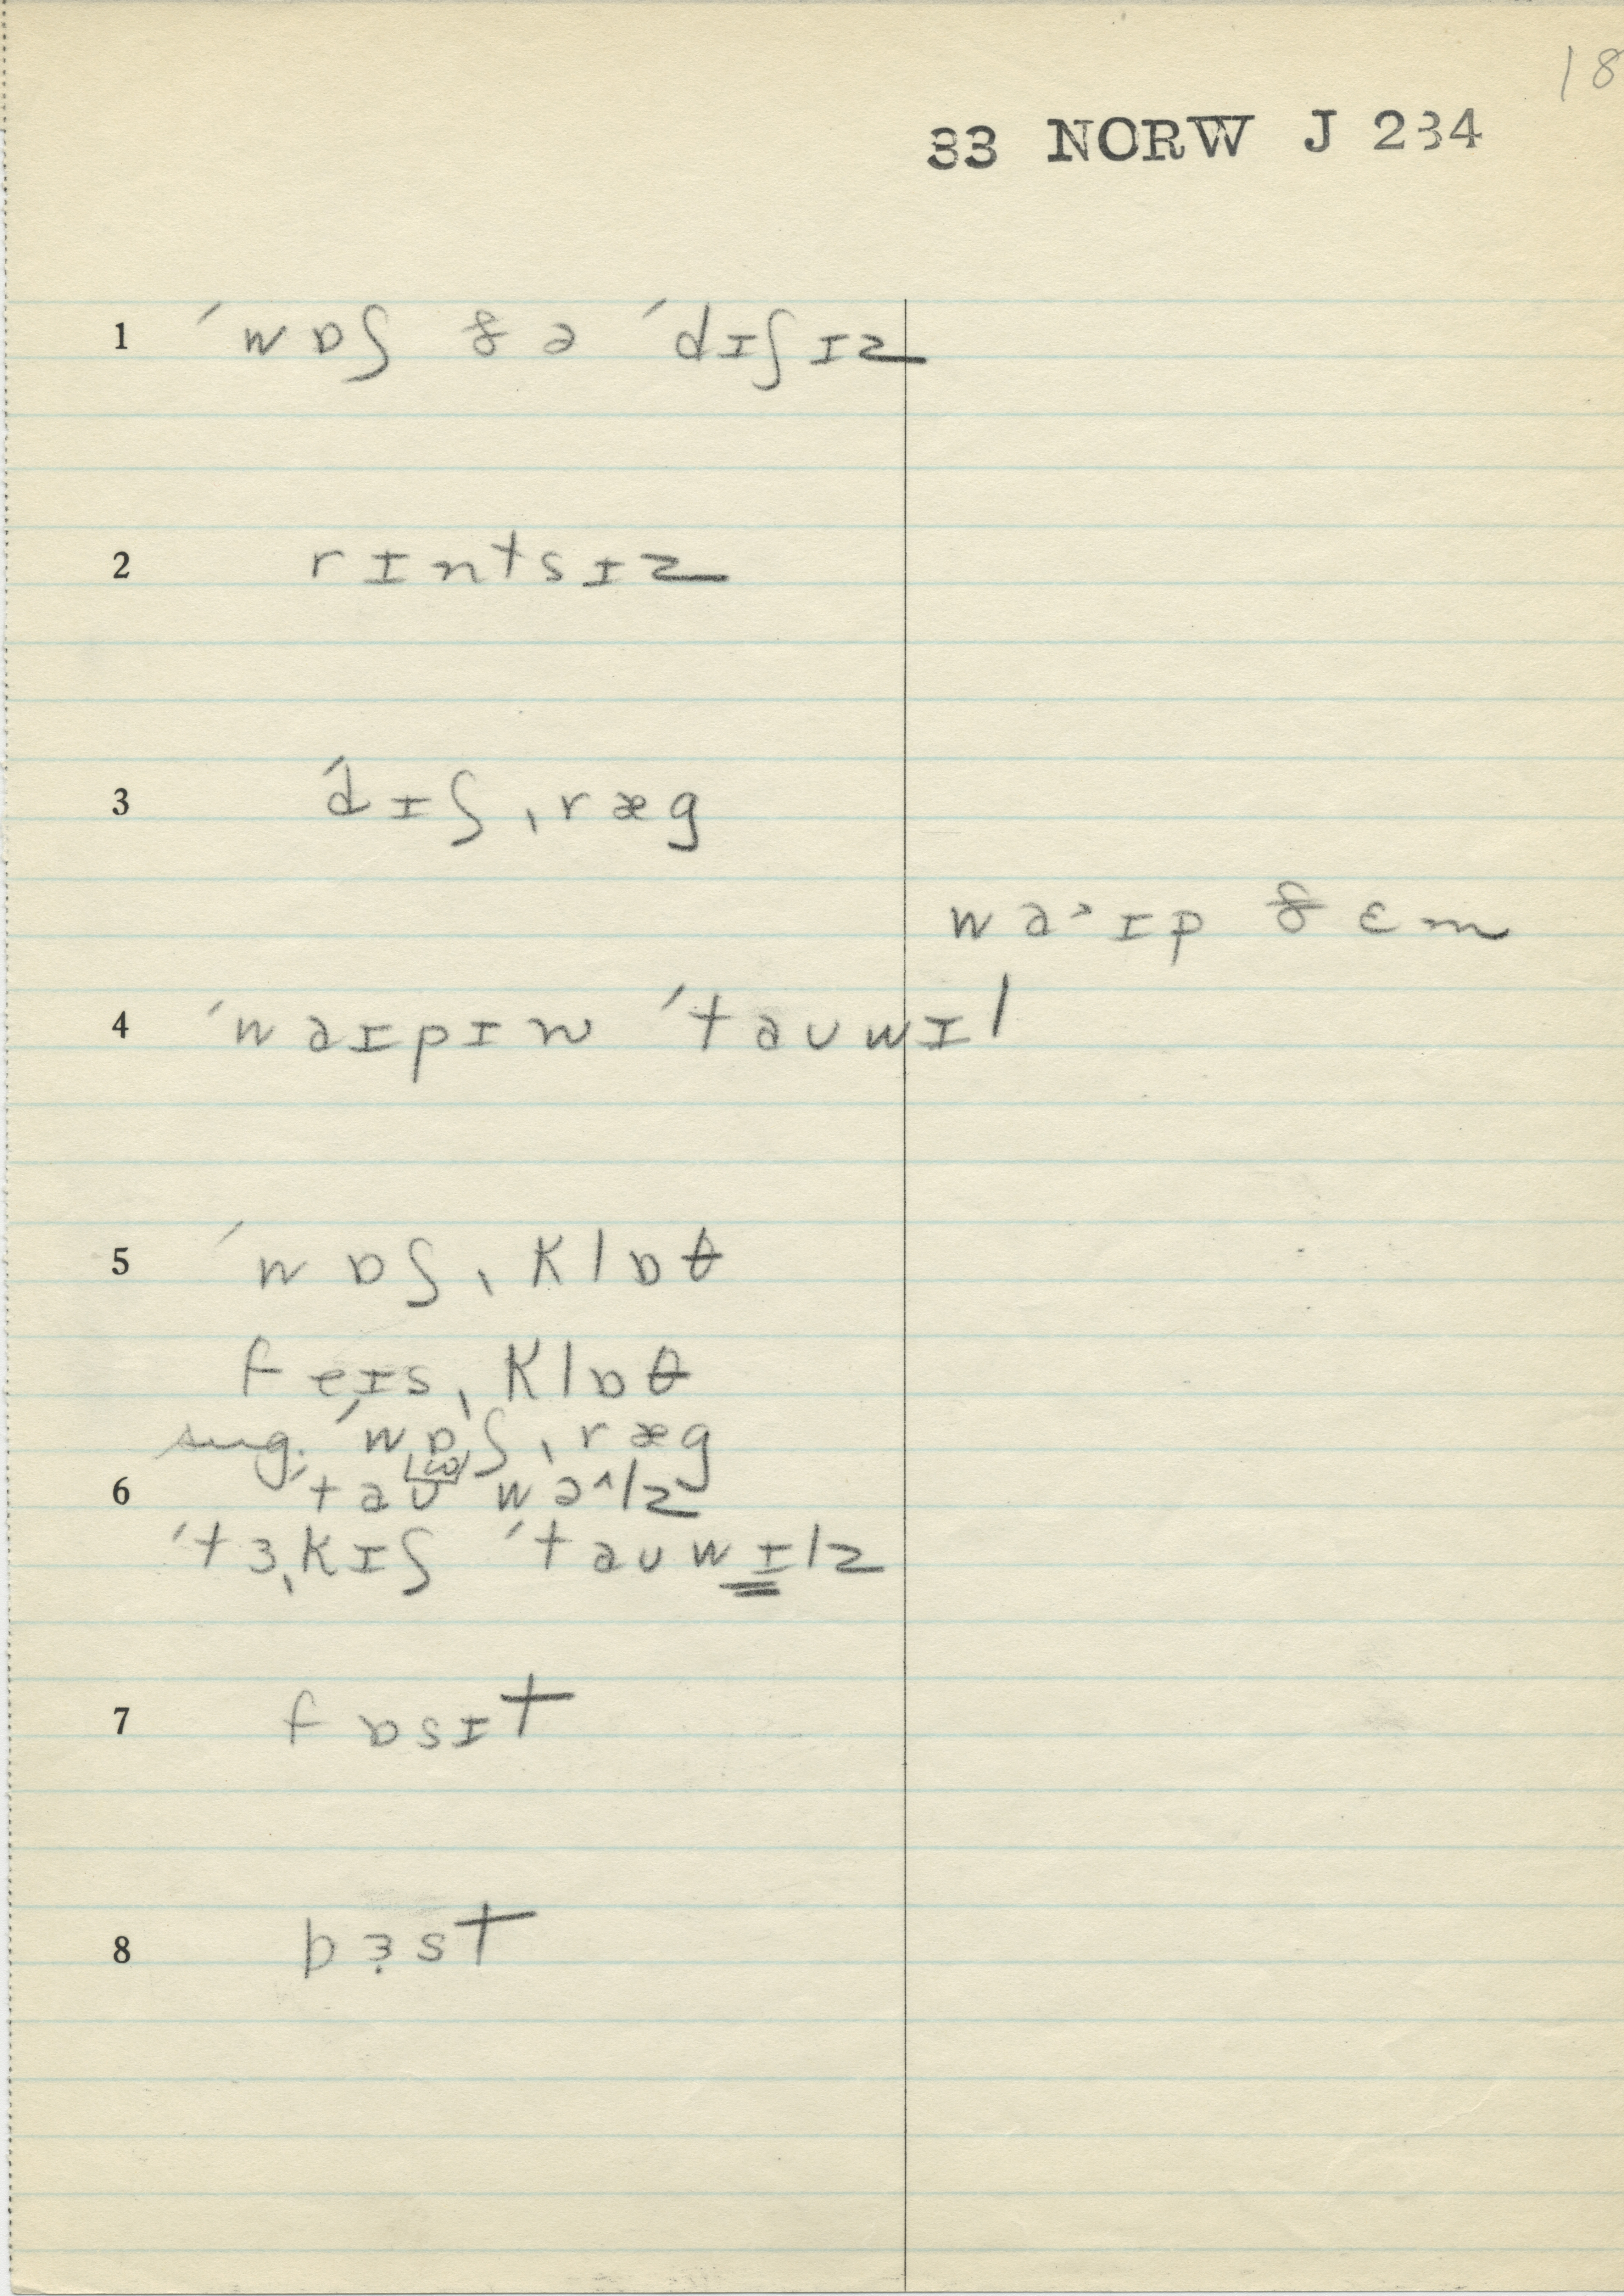 18
33 NORW J 234
1 ˈwɒʃ ðə ˈdɪʃɪz
2 rɪntsɪz
3 ˈdɪʃˌræg
waˑɪp ðɛm
4 ˈwaɪpɪn ˈtaʊwɪl
5 ˈwɒʃˌklɒθ
feɪsˌklɒθ
sug. ˈwɒʃˌræg
6 ˈtaʊ wə^lz
ˈtɜˌkɪʃ ˈtaʊwɪlz
7 fɒsɪt
8 bɜst